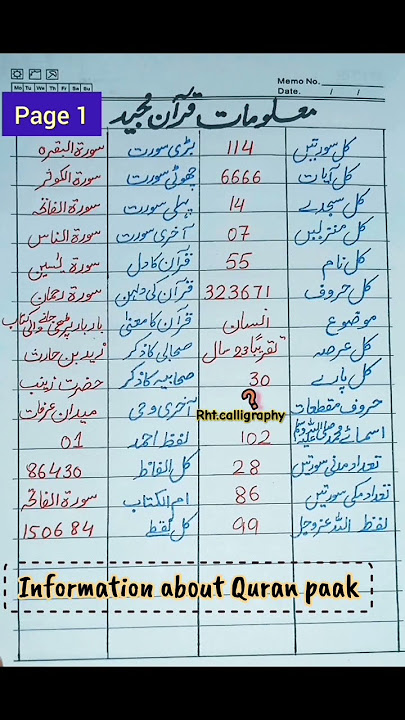 Memo No.
Mo Tu We Th Fr Sa Su
Date. / /
Page 1
معلومات قرآن مجید
کل سورتیں 114 بڑی سورت سورۃ البقرہ
کل آیات 6666 چھوٹی سورت سورۃ الکوثر
کل سجدے 14 پہلی سورت سورۃ الفاتحہ
کل منزلیں 07 آخری سورت سورۃ الناس
کل نام 55 قرآن کا دل سورۃ یٰسین
کل حروف 323671 قرآن کی دلہن سورۃ رحمان
موضوع انسان قرآن کا معنی بار بار پڑھی جانے والی کتاب
کل عرصہ تقریباً 23 سال صحابی کا ذکر زید بن حارث
کل پارے 30 صحابیہ کا ذکر حضرت زینب
حروف مقطعات ? آخری وحی میدان عرفات
Rht.calligraphy
اسمائے محمد ﷺ 102 لفظ احمد 01
تعداد مدنی سورتیں 28 کل الفاظ 86430
تعداد مکی سورتیں 86 ام الکتاب سورۃ الفاتحہ
لفظ اللہ عزوجل 99 کل نقطے 150684
Information about Quran paak